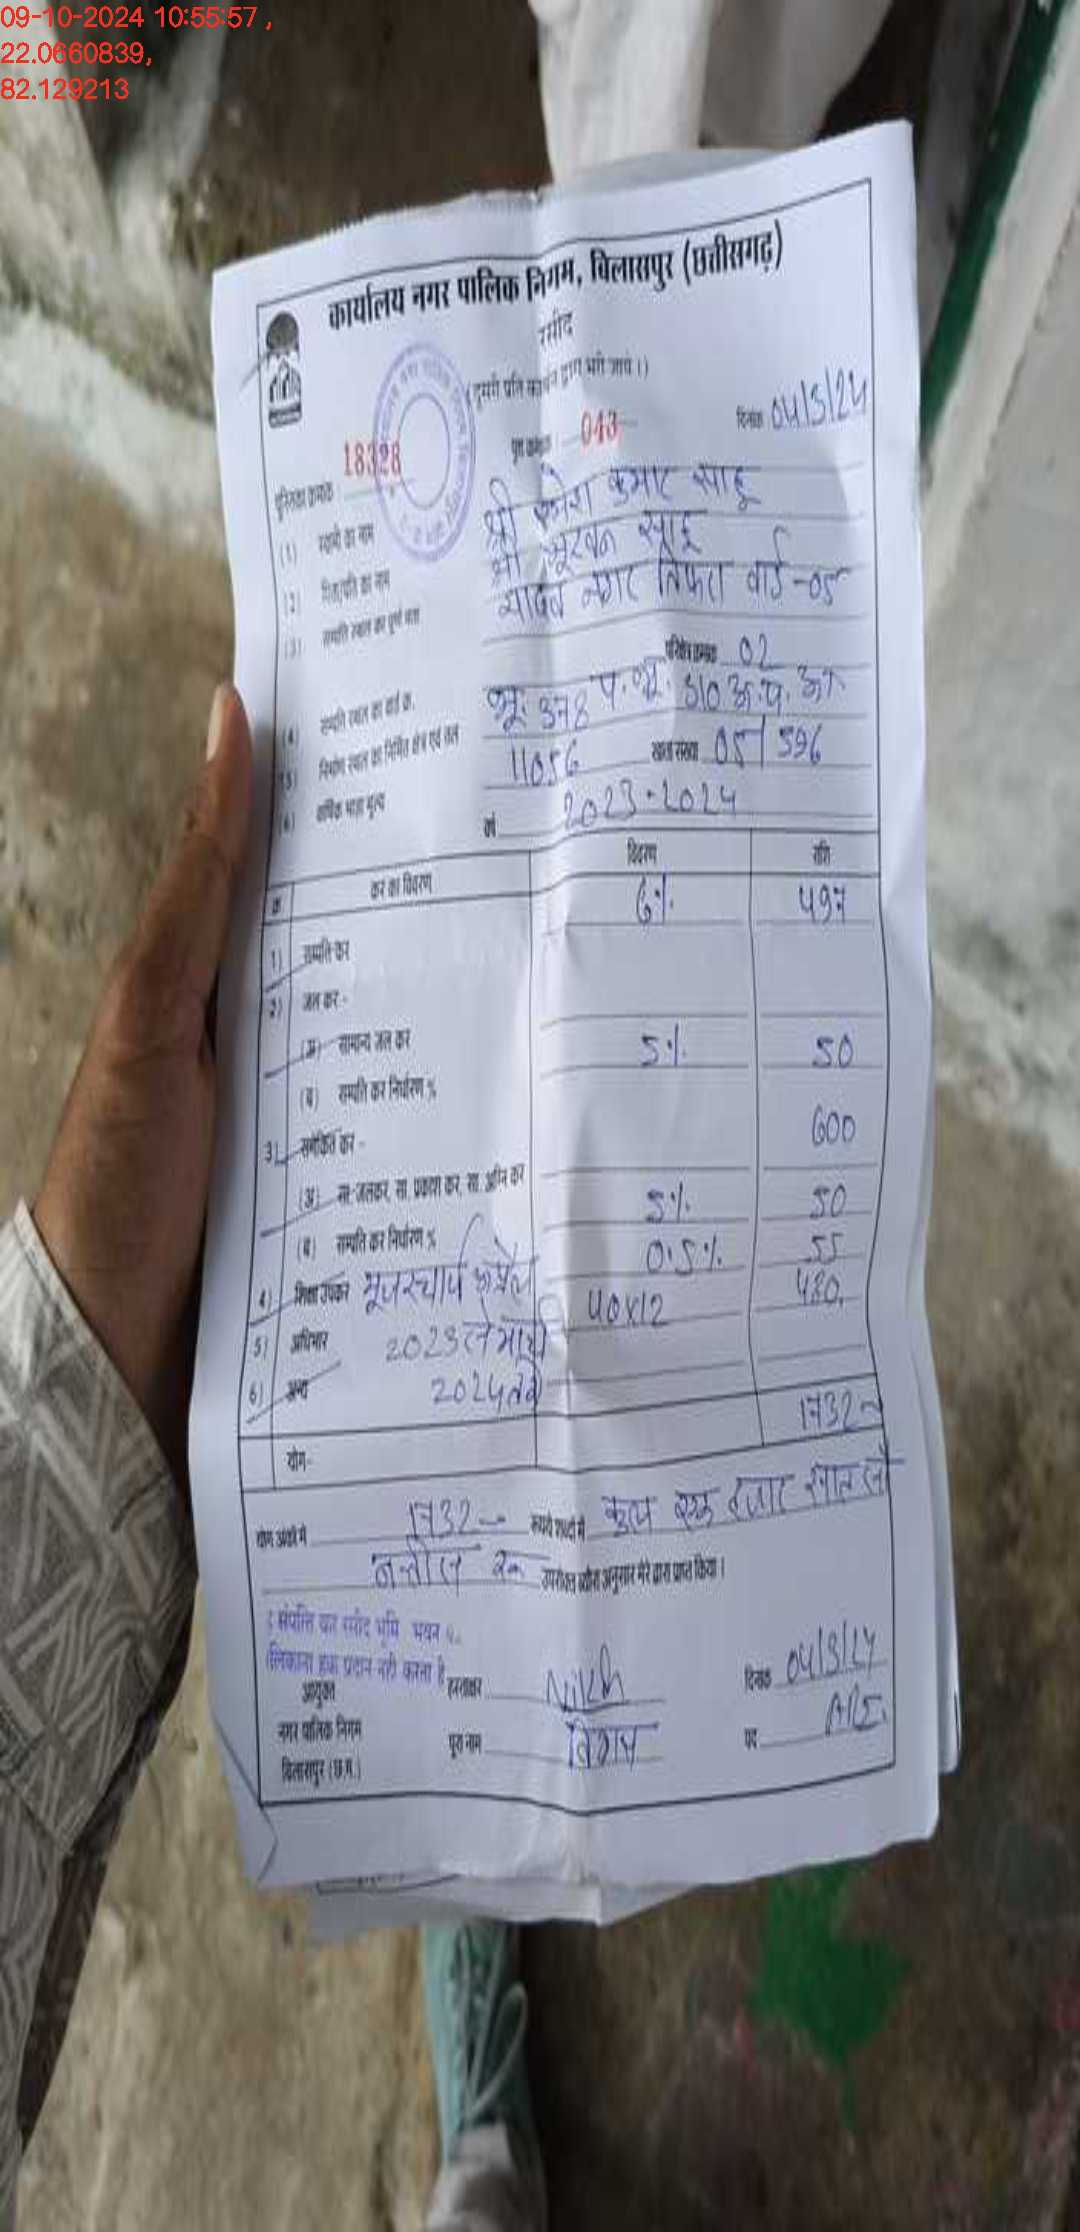 09-10-2024 10:55:57 ,
22.0660839,
82.129213
कार्यालय नगर पालिक निगम, बिलासपुर (छत्तीसगढ़)
रसीद
(दूसरी प्रति कार्बन द्वारा भरी जाय।)
पुस्तिका क्रमांक : 18328 पृष्ठ क्रमांक : 043 दिनांक 04/3/24
(1) स्वामी का नाम श्री कुमार साहू
(2) पिता/पति का नाम श्री साहू
(3) सम्पत्ति स्थल का पूर्ण पता यादव नगर तिफरा वार्ड-05
(4) सम्पत्ति स्थल का वार्ड क्र. परिक्षेत्र क्रमांक 02
(5) निर्माण स्थल का निर्मित क्षेत्र एवं तल भू. 378 प. भू. 310
(6) वार्षिक भाड़ा मूल्य 11056 खाता संख्या 05/596
वर्ष 2023-2024
क्र कर का विवरण विवरण राशि
1) सम्पत्ति कर 6% 497
2) जल कर -
(अ) सामान्य जल कर
(ब) सम्पत्ति कर निर्धारण % 5% 50
3) समेकित कर - 600
(अ) सा. जलकर, सा. प्रकाश कर, सा. अग्नि कर
(ब) सम्पत्ति कर निर्धारण % 5% 50
4) शिक्षा उपकर 0.5% 55
5) अधिभार 2023 से मार्च 40x12 480.
6) अन्य 2024 तक
योग- 1732
योग अंको में 1732 रूपये शब्दों में कुल एक हजार सात सौ
बत्तीस उपरोक्त ब्योरा अनुसार मेरे द्वारा प्राप्त किया।
संपत्ति कर रसीद भूमि भवन
प्रदान नही करता है
आयुक्त हस्ताक्षर दिनांक 04/3/24
नगर पालिक निगम पूरा नाम पद
बिलासपुर (छ.ग.)